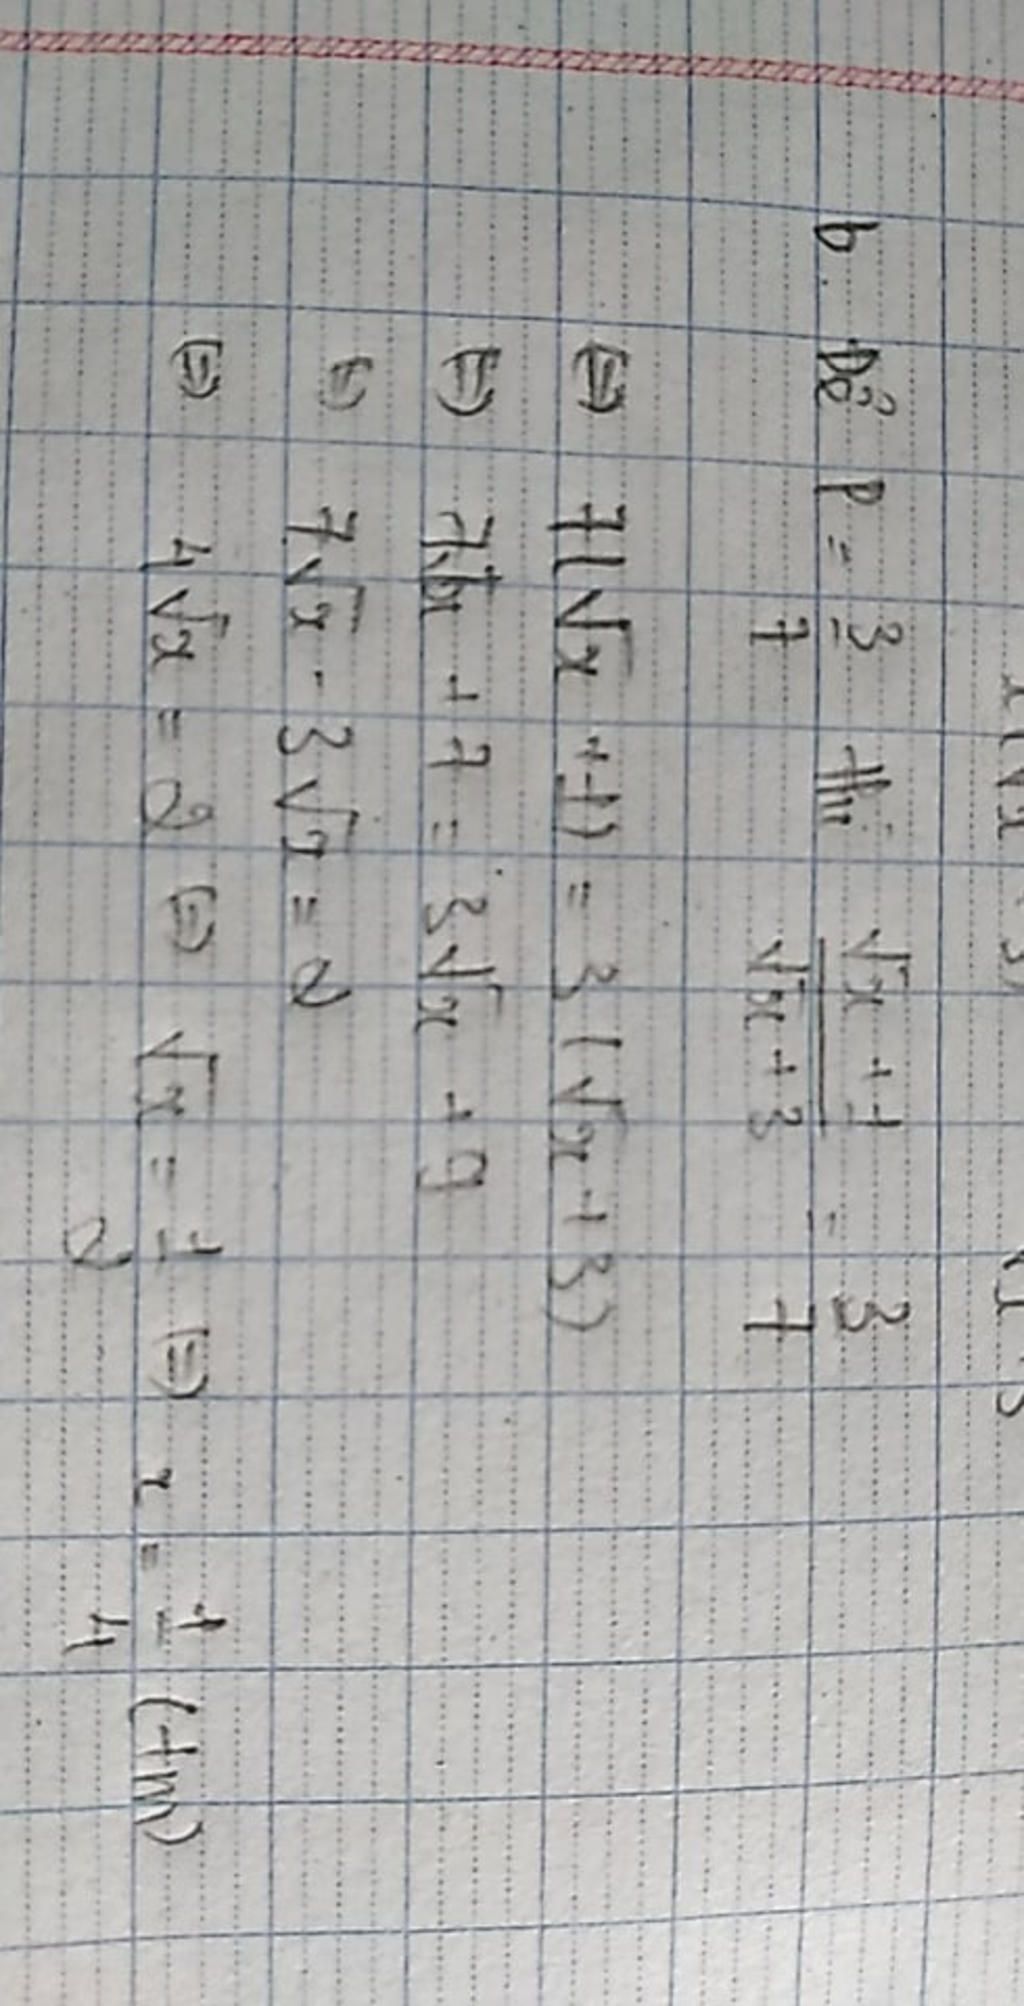 b. Để P = 3/7 thì (√x + 1)/(√x + 3) = 3/7
(=) 7(√x + 1) = 3(√x + 3)
(=) 7√x + 7 = 3√x + 9
(=) 7√x - 3√x = 2
(=) 4√x = 2 (=) √x = 1/2 (=) x = 1/4 (tm)